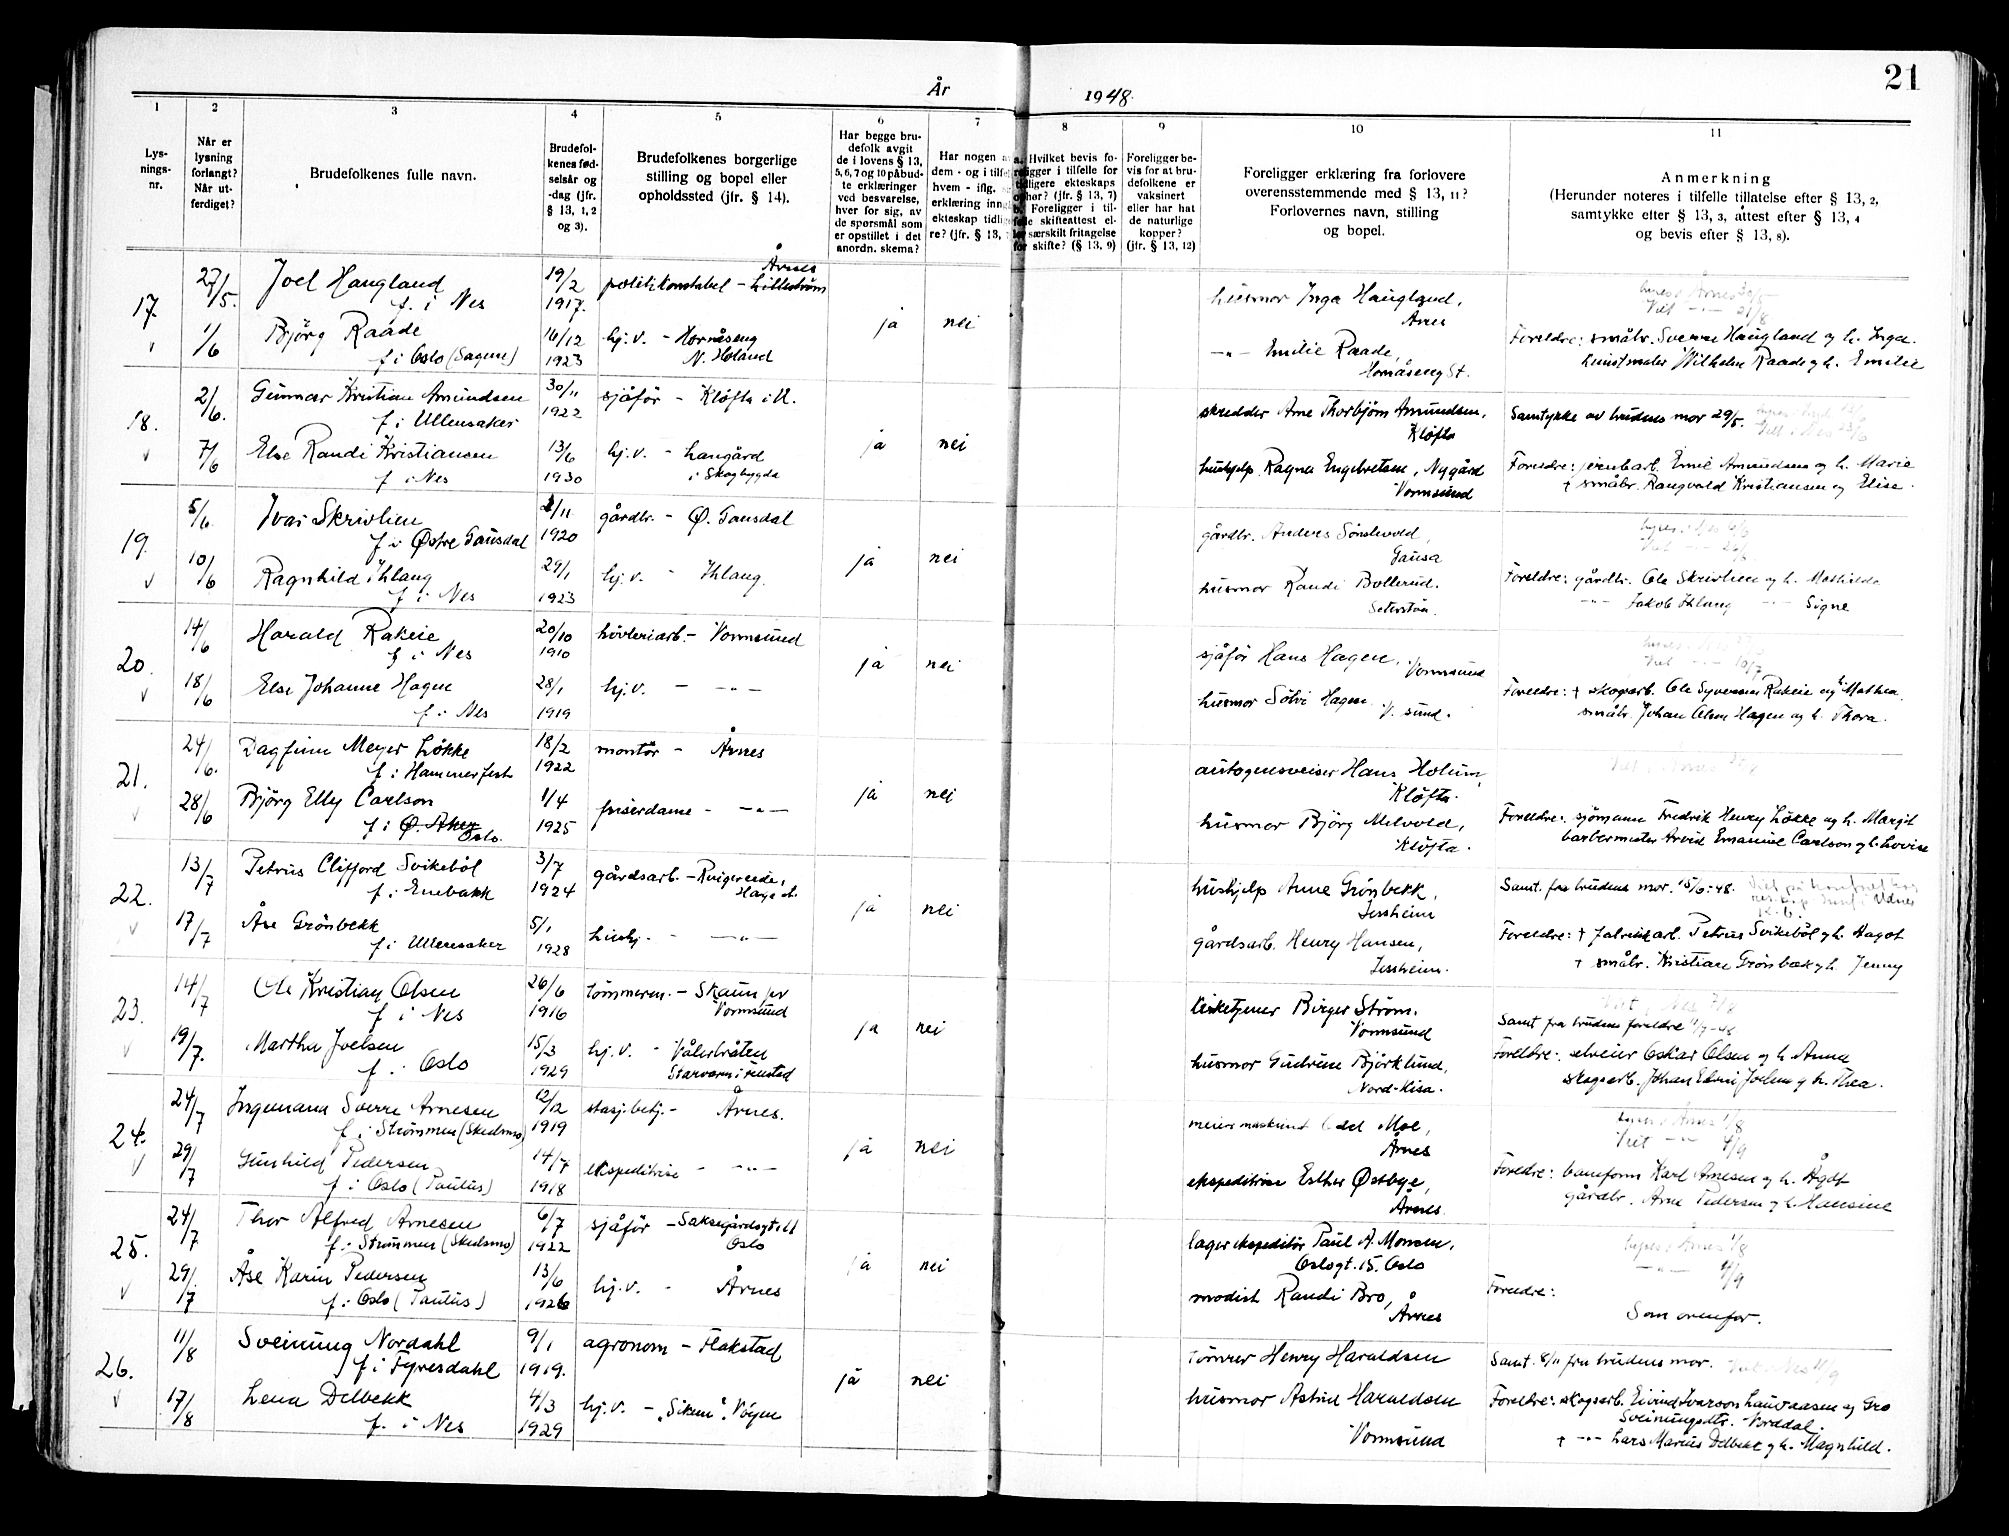 År 1948. 21
1 2 3 4 5 6 7 8 9 10 11
Lys-
nings-
nr.
Når er
lysning
forlangt?
Når ut-
ferdiget?
Brudefolkenes fulle navn.
Brudefol-
kenes fød-
selsår og
-dag (jfr.
§ 13, 1, 2
og 3).
Brudefolkenes borgerlige
stilling og bopel eller
opholdssted (jfr. § 14).
Har begge bru-
defolk avgit
de i lovens § 13,
5, 6, 7 og 10 påbud-
te erklæringer
ved besvarelse,
hver for sig, av
de spørsmål som
er opstillet i det
anordn. skema?
Har nogen a
dem - og i tilfel
hvem - iflg.
erklæring inng
ekteskap tidlig
re? (jfr. § 13,
Hvilket bevis fo-
religger i tilfelle for
tidligere ekteskaps
ophør? (jfr. § 13, 7)
b. Foreligger i til-
felle skifteattest el-
ler særskilt fritagelse
for skifte? (§ 13, 9)
Foreligger be-
vis for at bru-
defolkene er
vaksinert
eller har hat
de naturlige
kopper?
(jfr. § 13, 12)
Foreligger erklæring fra forlovere
overensstemmende med § 13, 11?
Forlovernes navn, stilling
og bopel.
Anmerkning
(Herunder noteres i tilfelle tillatelse efter § 13, 2,
samtykke efter § 13, 3, attest efter § 13, 4
og bevis efter § 13, 8).
17. 27/5. Joel Haugland 19/2 politikonstabel - Årnes Lillestrøm husmor Inga Haugland,
f. i Nes 1917. ja nei Årnes
v 1/6 Bjørg Raade 16/12 hj.v. - Hornåseng -"- Emilie Raade, Foreldre: småbr. Sverre Haugland og h. Inga
f. i Oslo (Sagene) 1923 N. Høland Hornåseng St. kunstmaler Wilhelm Raade og h. Emilie
18. 2/6. Gunnar Kristian Amundsen 30/11 sjåfør - Kløfta i U. skredder Arne Thorbjørn Amundsen, Samtykke av brudens mor 29/5.
f. i Ullensaker 1922 ja nei Kløfta
v 7/6 Else Randi Kristiansen 13/6 hj.v. - Langård hushjelp Ragna Engebretsen, Nygård Foreldre: jernbarb. Emil Amundsen og h. Marie
f i Nes 1930 i Skogbygda Vormsund † småbr. Rangvald Kristiansen og Elise.
19. 5/6. Ivar Skrivlien /11 gårdbr. - Ø. Gausdal gårdbr. Anders Sønstevold,
f i Østre Gausdal 1920 ja nei Gausa
v 10/6 Ragnhild Ihlang 29/1 hj.v. - Ihlang. husmor Randi Bollerud. Foreldre: gårdbr. Ole Skrivlien og h. Mathilde
f i Nes 1923 Seterstøa. -"- Jakob Ihlang -"- Signe
20. 14/6 Harald Rakeie 20/10 høvleriarb. - Vormsund sjåfør Hans Hagen, Vormsund
f i Nes 1910 ja nei
v 18/6 Else Johanne Hagen 28/1 hj.v. - -"- husmor Sølvi Hagen V. sund. Foreldre: † skogarb. Ole Syversen Rakeie og h. Mathea
f. i Nes 1919 småbr. Johan Olsen Hagen og h. Thora.
21. 24/6. Dagfinn Meyer Løkke 18/2 montør - Årnes autogensveiser Hans Holum,
f. i Hammerfest 1922 ja nei Kløfta.
v 28/6 Bjørg Elly Carlson 1/4 friserdame - -"- husmor Bjørg Melvold, Foreldre: sjømann Fredrik Henry Løkke og h. Margit
f i Ø. Aker Oslo. 1925 Kløfta. barbermester Arvid Emanuel Carlson og h. Lovise
22. 13/7 Petrus Clifford Svikebøl 3/7 gårdsarb. - hushjelp Anne Grønbekk, Samt. fra brudens mor. 15/6-48.
f. i Enebakk 1924 Haga st. ja nei Jessheim
v 17/7 Åse Grønbekk 5/1 hushj. - -"- gårdsarb. Henry Hansen, Foreldre: † fabrikkarb. Petrus Svikebøl og h. Hagot
f. i Ullensaker 1928 Jessheim. † småbr. Kristian Grønbæk og h. Jenny
23. 14/7 Ole Kristian Olsen 26/6 tømmerm. - Skaun pr kirketjener Birger Strøm.
f i Nes 1916 Vormsund ja nei Vormsund Samt fra brudens foreldre 11/7-48
v 19/7. Martha Joelsen 15/3 hj.v. - Vålerbråten husmor Gudrun Bjørklund, Foreldre: selveier Oskar Olsen og h. Anna
f. i Oslo 1929 Nord-Kisa. skogsarb. Johan Edvin Joelsen og h. Thea.
24. 24/7 Ingemann Sverre Arnesen 12/12 stasj.betj. - Årnes. meierimaskinist Odd Moe,
f. i Strømmen (Skedsmo) 1919 ja nei Årnes
v 29/7 Gunhild Pedersen 14/7 ekspeditrise - -"- ekspeditrise Esther Østbye, Foreldre: baneform. Karl Arnesen og h. Ågot
f. i Oslo (Paulus) 1918 Årnes. gårdbr. Arne Pedersen og h. Hansine
25. 24/7. Thor Alfred Arnesen 6/7 sjåfør - lagerekspeditør Paul A. Monsen,
f. i Strømmen (Skedsmo) 1922 Oslo ja nei Oslogt. 15. Oslo
v 29/7 Åse Karin Pedersen 13/6 hj.v. - Årnes modist Randi Bro, Foreldre:
f. i Oslo (Paulus) 1926 Årnes Som ovenfor.
26. 11/8 Sveinung Nordahl 9/1 agronom - Flakstad tømrer Henry Haraldsen Samt. 8/11 fra brudens mor.
f i Fyresdahl 1919. ja nei
v 17/8 Lena Delbekk 4/3 hj.v. - husmor Astrid Haraldsen Foreldre: skogsarb. Eivind Ivarson Lauvaasen og Gro
f. i Nes 1929 Vormsund Sveinungsdtr. Nordal.
† -"- Lars Marius Delbekk og h. Magnhild.